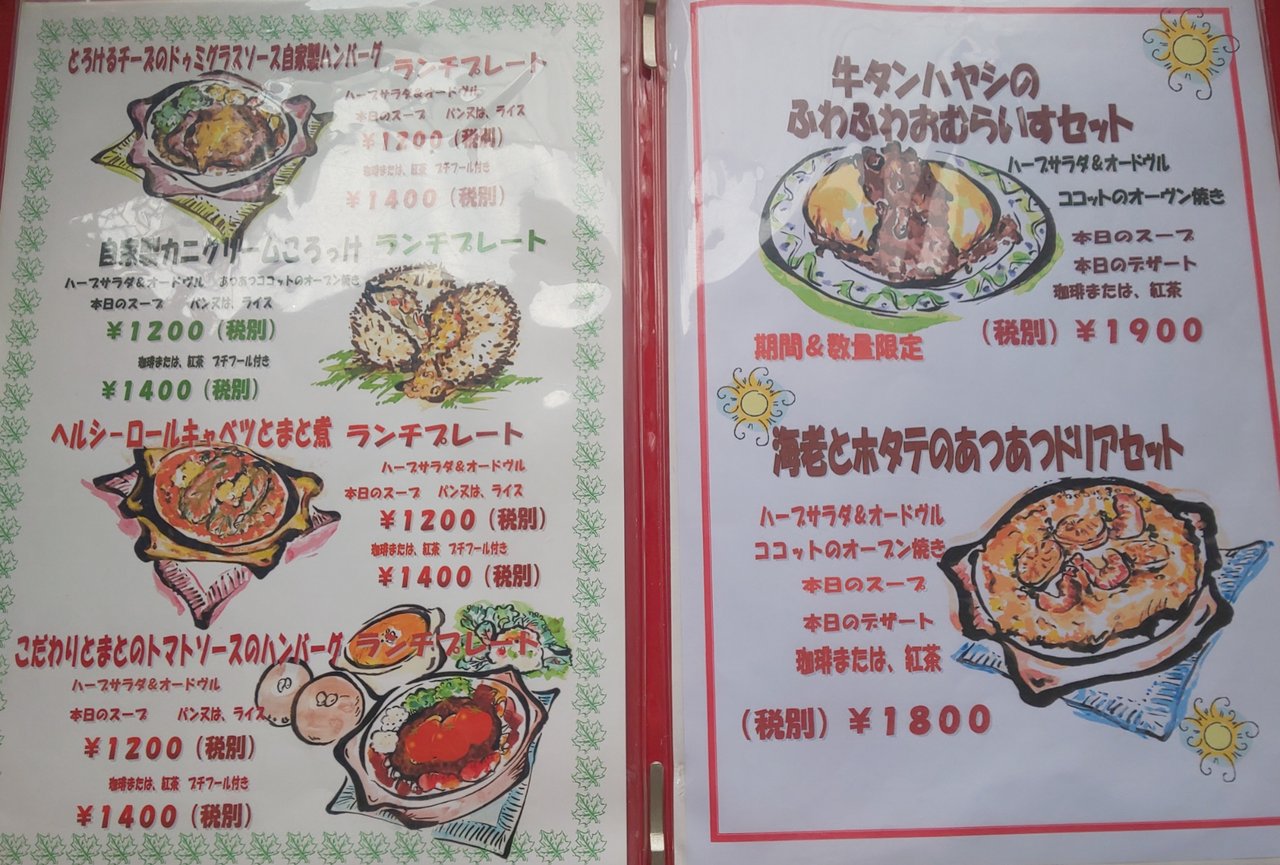 とろけるチーズのドゥミグラスソース自家製ハンバーグ ランチプレート
ハーブサラダ&オードヴル
本日のスープ パン又は、ライス
￥1200（税別）
珈琲または、紅茶 プチフール付き
￥1400（税別）
自家製カニクリームころっけ ランチプレート
ハーブサラダ&オードヴル あつあつココットのオーブン焼き
本日のスープ パン又は、ライス
￥1200（税別）
珈琲または、紅茶 プチフール付き
￥1400（税別）
ヘルシーロールキャベツとまと煮 ランチプレート
ハーブサラダ&オードヴル
本日のスープ パン又は、ライス
￥1200（税別）
珈琲または、紅茶 プチフール付き
￥1400（税別）
こだわりとまとのトマトソースのハンバーグ ランチプレート
ハーブサラダ&オードヴル
本日のスープ パン又は、ライス
￥1200（税別）
珈琲または、紅茶 プチフール付き
￥1400（税別）
牛タンハヤシの
ふわふわおむらいすセット
ハーブサラダ&オードヴル
ココットのオーヴン焼き
本日のスープ
本日のデザート
珈琲または、紅茶
（税別）￥1900
期間＆数量限定
海老とホタテのあつあつドリアセット
ハーブサラダ&オードヴル
ココットのオーブン焼き
本日のスープ
本日のデザート
珈琲または、紅茶
（税別）￥1800